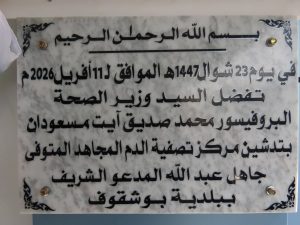 بسم الله الرحمن الرحيم
في يوم 23 شوال 1447هـ الموافق لـ 11 أفريل 2026 م
تفضل السيد وزير الصحة
البروفيسور محمد صديق آيت مسعودان
بتدشين مركز تصفية الدم المجاهد المتوفى
جاهل عبد الله المدعو الشريف
ببلدية بوشقوف